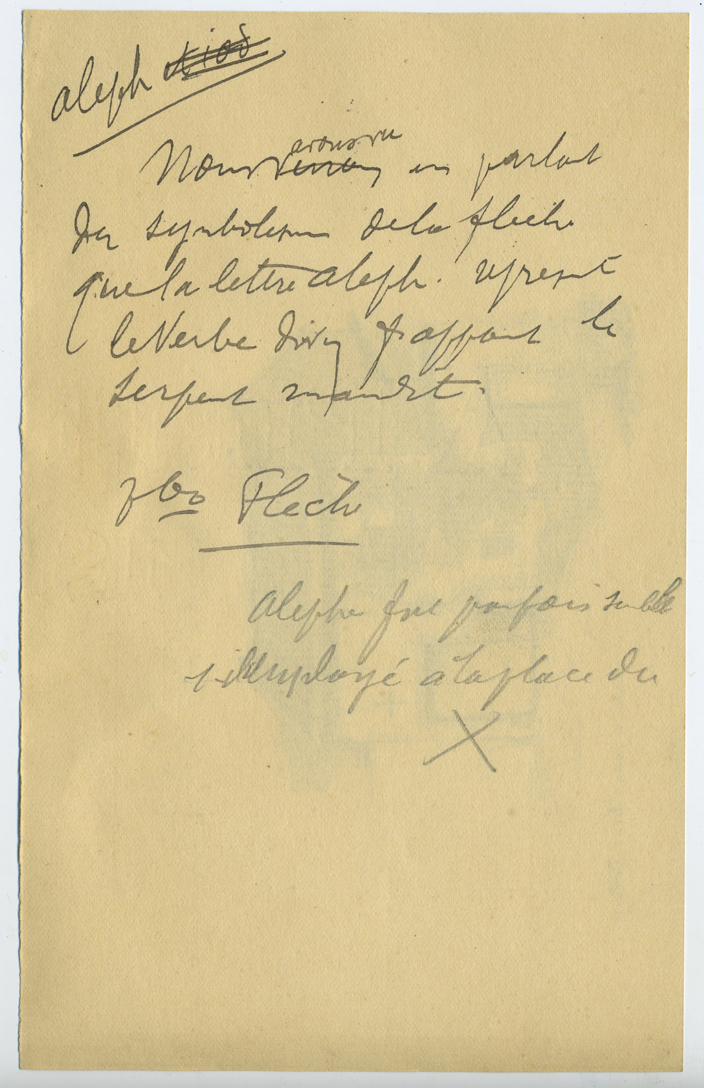 aleph
Nous avons vu en parlant
du symbolisme de la flèche
que la lettre aleph. représente
le Verbe divin frappant le
serpent maudit.
Vbo Flèche
aleph fut parfois semble
t-il employé à la place du
X